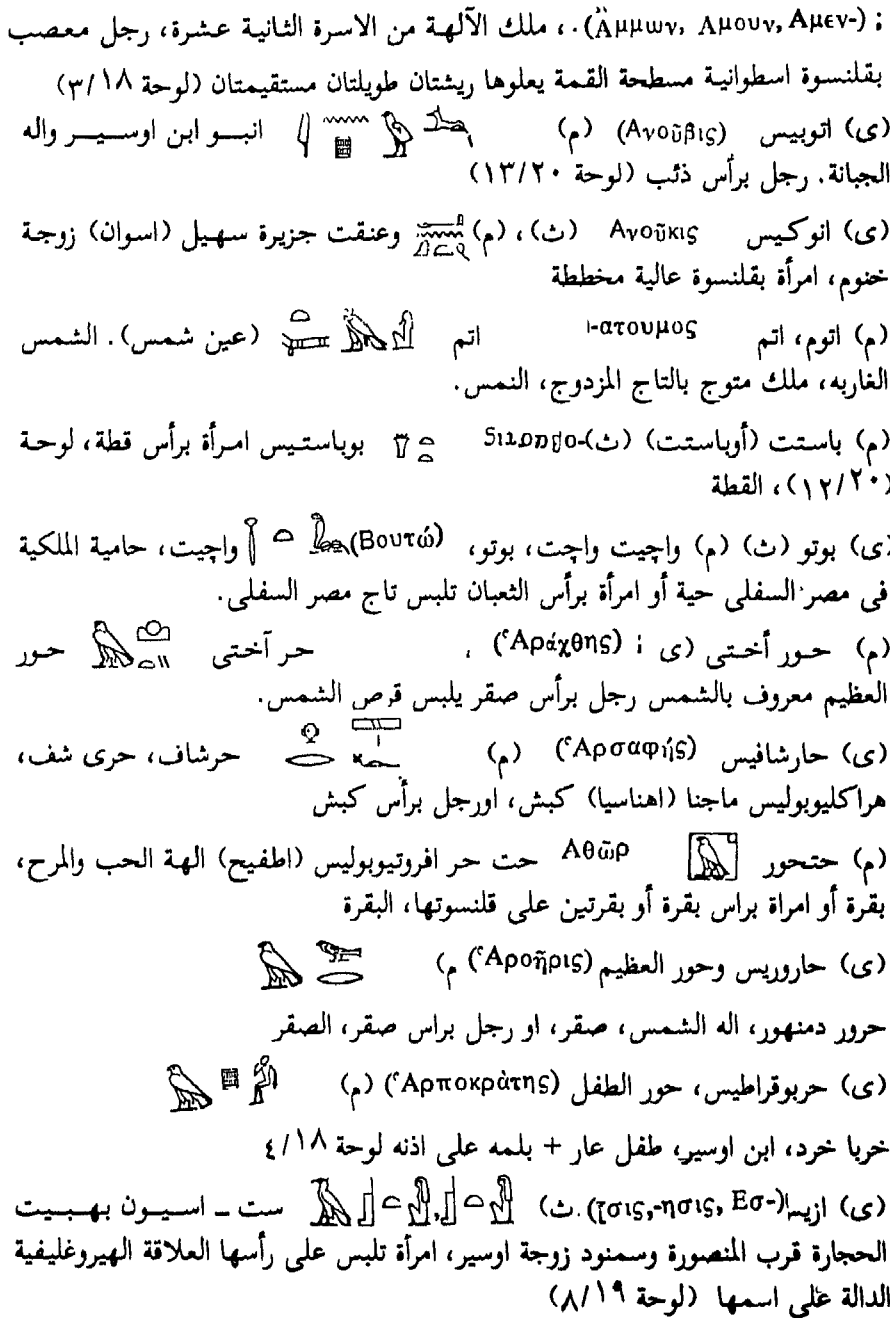 ؛ (Ἄμμων, Αμουν, Αμεν-).، ملك الآلهة من الاسرة الثانية عشرة، رجل معصب
بقلنسوة اسطوانية مسطحة القمة يعلوها ريشتان طويلتان مستقيمتان (لوحة ٣/١٨)
(ى) اتوبيس (Ανοῦβις) (م) انبو ابن اوسير واله
الجبانة. رجل برأس ذئب (لوحة ١٣/٢٠)
(ى) انوكيس Ανοῦκις (ث)، (م) وعنقت جزيرة سهيل (اسوان) زوجة
خنوم، امرأة بقلنسوة عالية مخططة
(م) اتوم، اتم -ατουμος اتم (عين شمس). الشمس
الغاربه، ملك متوج بالتاج المزدوج، النمس.
(م) باستت (أوباستت) (ث) بوباستيس امرأة برأس قطة، لوحة
(١٢/٢٠)، القطة
(ى) بوتو (ث) (م) واچيت واچت، بوتو، (Βουτώ) واچيت، حامية الملكية
فى مصر السفلى حية أو امرأة برأس الثعبان تلبس تاج مصر السفلى.
(م) حور أختى (ى ؛ (Ἁράχθης) ، حر آختى حور
العظيم معروف بالشمس رجل برأس صقر يلبس قرص الشمس.
(ى) حارشافيس (Ἁρσαφής) (م) حرشاف، حرى شف،
هراكليوبوليس ماجنا (اهناسيا) كبش، اورجل برأس كبش
(م) حتحور Αθῶρ حت حر افروتيوبوليس (اطفيح) الهة الحب والمرح،
بقرة أو امراة براس بقرة أو بقرتين على قلنسوتها، البقرة
(ى) حاروريس وحور العظيم (Ἁροῆρις) م)
حرور دمنهور، اله الشمس، صقر، او رجل براس صقر، الصقر
(ى) حربوقراطيس، حور الطفل (Ἁρποκράτης) (م)
خربا خرد، ابن اوسير، طفل عار + بلمه على اذنه لوحة ٤/١٨
(ى) ازيس (Ἶσις,-ησις, Εσ-).ث) ست ـ اسيون بهبيت
الحجارة قرب المنصورة وسمنود زوجة اوسير، امرأة تلبس على رأسها العلاقة الهيروغليفية
الدالة على اسمها (لوحة ٨/١٩)